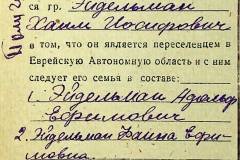 ся гр. Эйдельман
Хаим Иосифович
в том, что он является переселенцем в
Еврейскую Автономную область и с ним
следует его семья в составе:
1. Эйдельман Адольф
Ефимович
2. Эйдельман Ефи
мовна